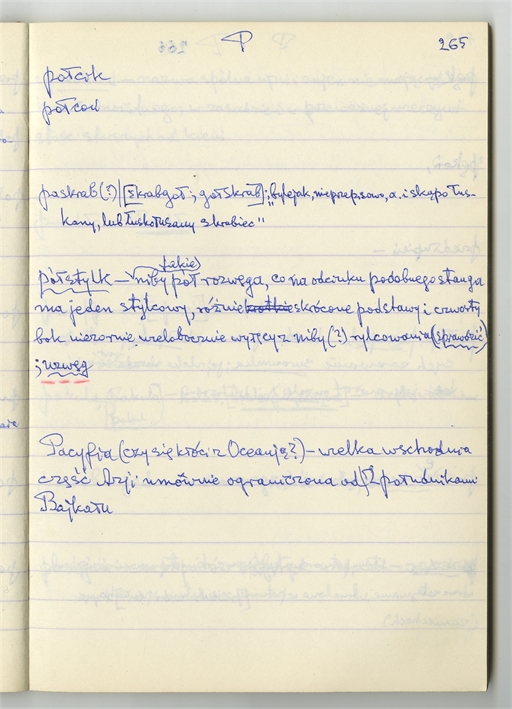 P 265
połcik
połcod
paskrab(?)/[skrabgoł; gołskrab]; „bylejak, nieprzepisowo, a. i skąpo łus-
kany, lub łuskołuzany skrobiec"
takie)
półstylk – niby pół rozwęga, co na odcinku podobnego stanga
ma jeden stylcowy, różnie skrócone podstawy i czwarty
bok niezornie, wielobocznie wyżęty z niby (?) rylcowania (sprawdzić)
; wzwęg
Pacyfia (czy się kłóci z Oceanią?) – wielka wschodnia
część Azji umownie ograniczona od Z południkami
Bajkału